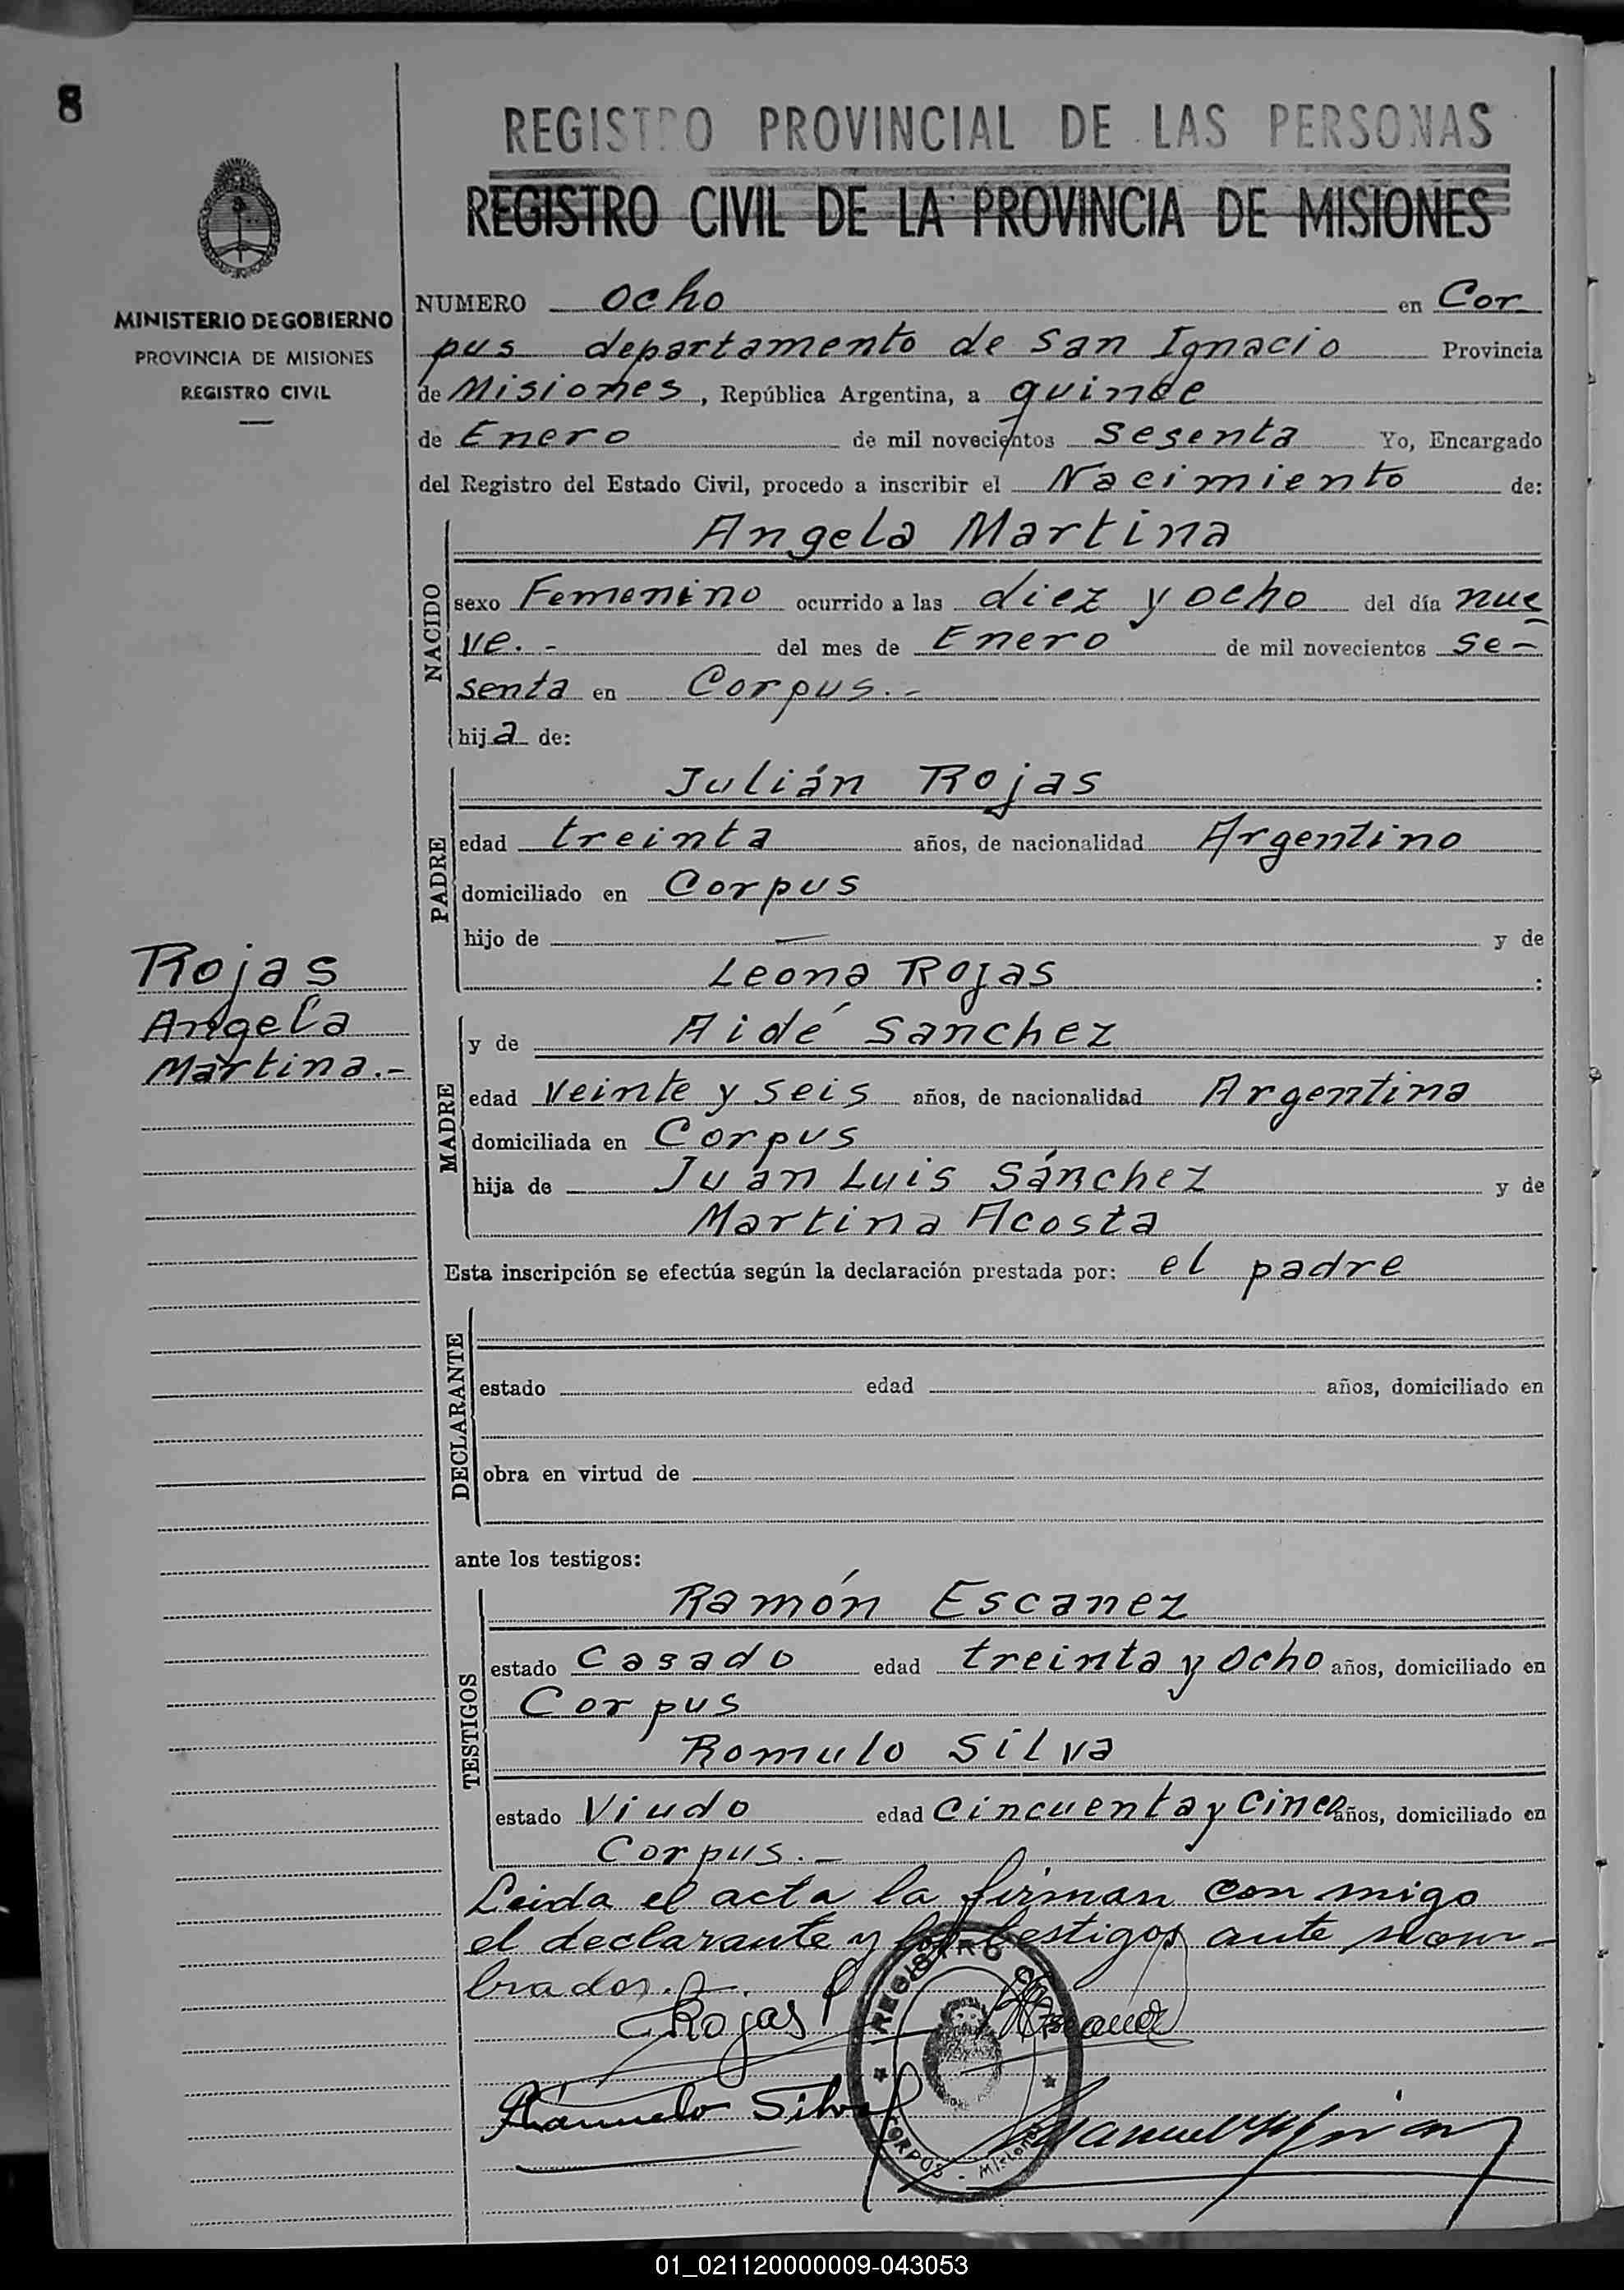 8
REGISTRO PROVINCIAL DE LAS PERSONAS
REGISTRO CIVIL DE LA PROVINCIA DE MISIONES
MINISTERIO DE GOBIERNO
PROVINCIA DE MISIONES
REGISTRO CIVIL
NUMERO ocho en Cor
pus departamento de San Ignacio Provincia
de Misiones, República Argentina, a quince
de Enero de mil novecientos sesenta Yo, Encargado
del Registro del Estado Civil, procedo a inscribir el Nacimiento de:
NACIDO
Angela Martina
sexo Femenino ocurrido a las diez y ocho del día nue
ve.- del mes de Enero de mil novecientos se-
senta en Corpus.-
hija de:
PADRE
Julián Rojas
edad treinta años, de nacionalidad Argentino
domiciliado en Corpus
hijo de — y de
Leona Rojas :
Rojas
Angela
Martina.-
MADRE
y de Aidé Sanchez
edad Veinte y seis años, de nacionalidad Argentina
domiciliada en Corpus
hija de Juan Luis Sánchez y de
Martina Acosta
Esta inscripción se efectúa según la declaración prestada por: el padre
DECLARANTE
estado edad años, domiciliado en
obra en virtud de
ante los testigos:
TESTIGOS
Ramón Escanez
estado Casado edad treinta y ocho años, domiciliado en
Corpus
Romulo Silva
estado Viudo edad Cincuenta y cinco años, domiciliado en
Corpus.-
Leida el acta la firman con migo
el declarante y los testigos ante nom-
brados.-
Rojas
REGISTRO CIVIL
CORPUS - Misiones
Silva
Manuel
01_021120000009-043053